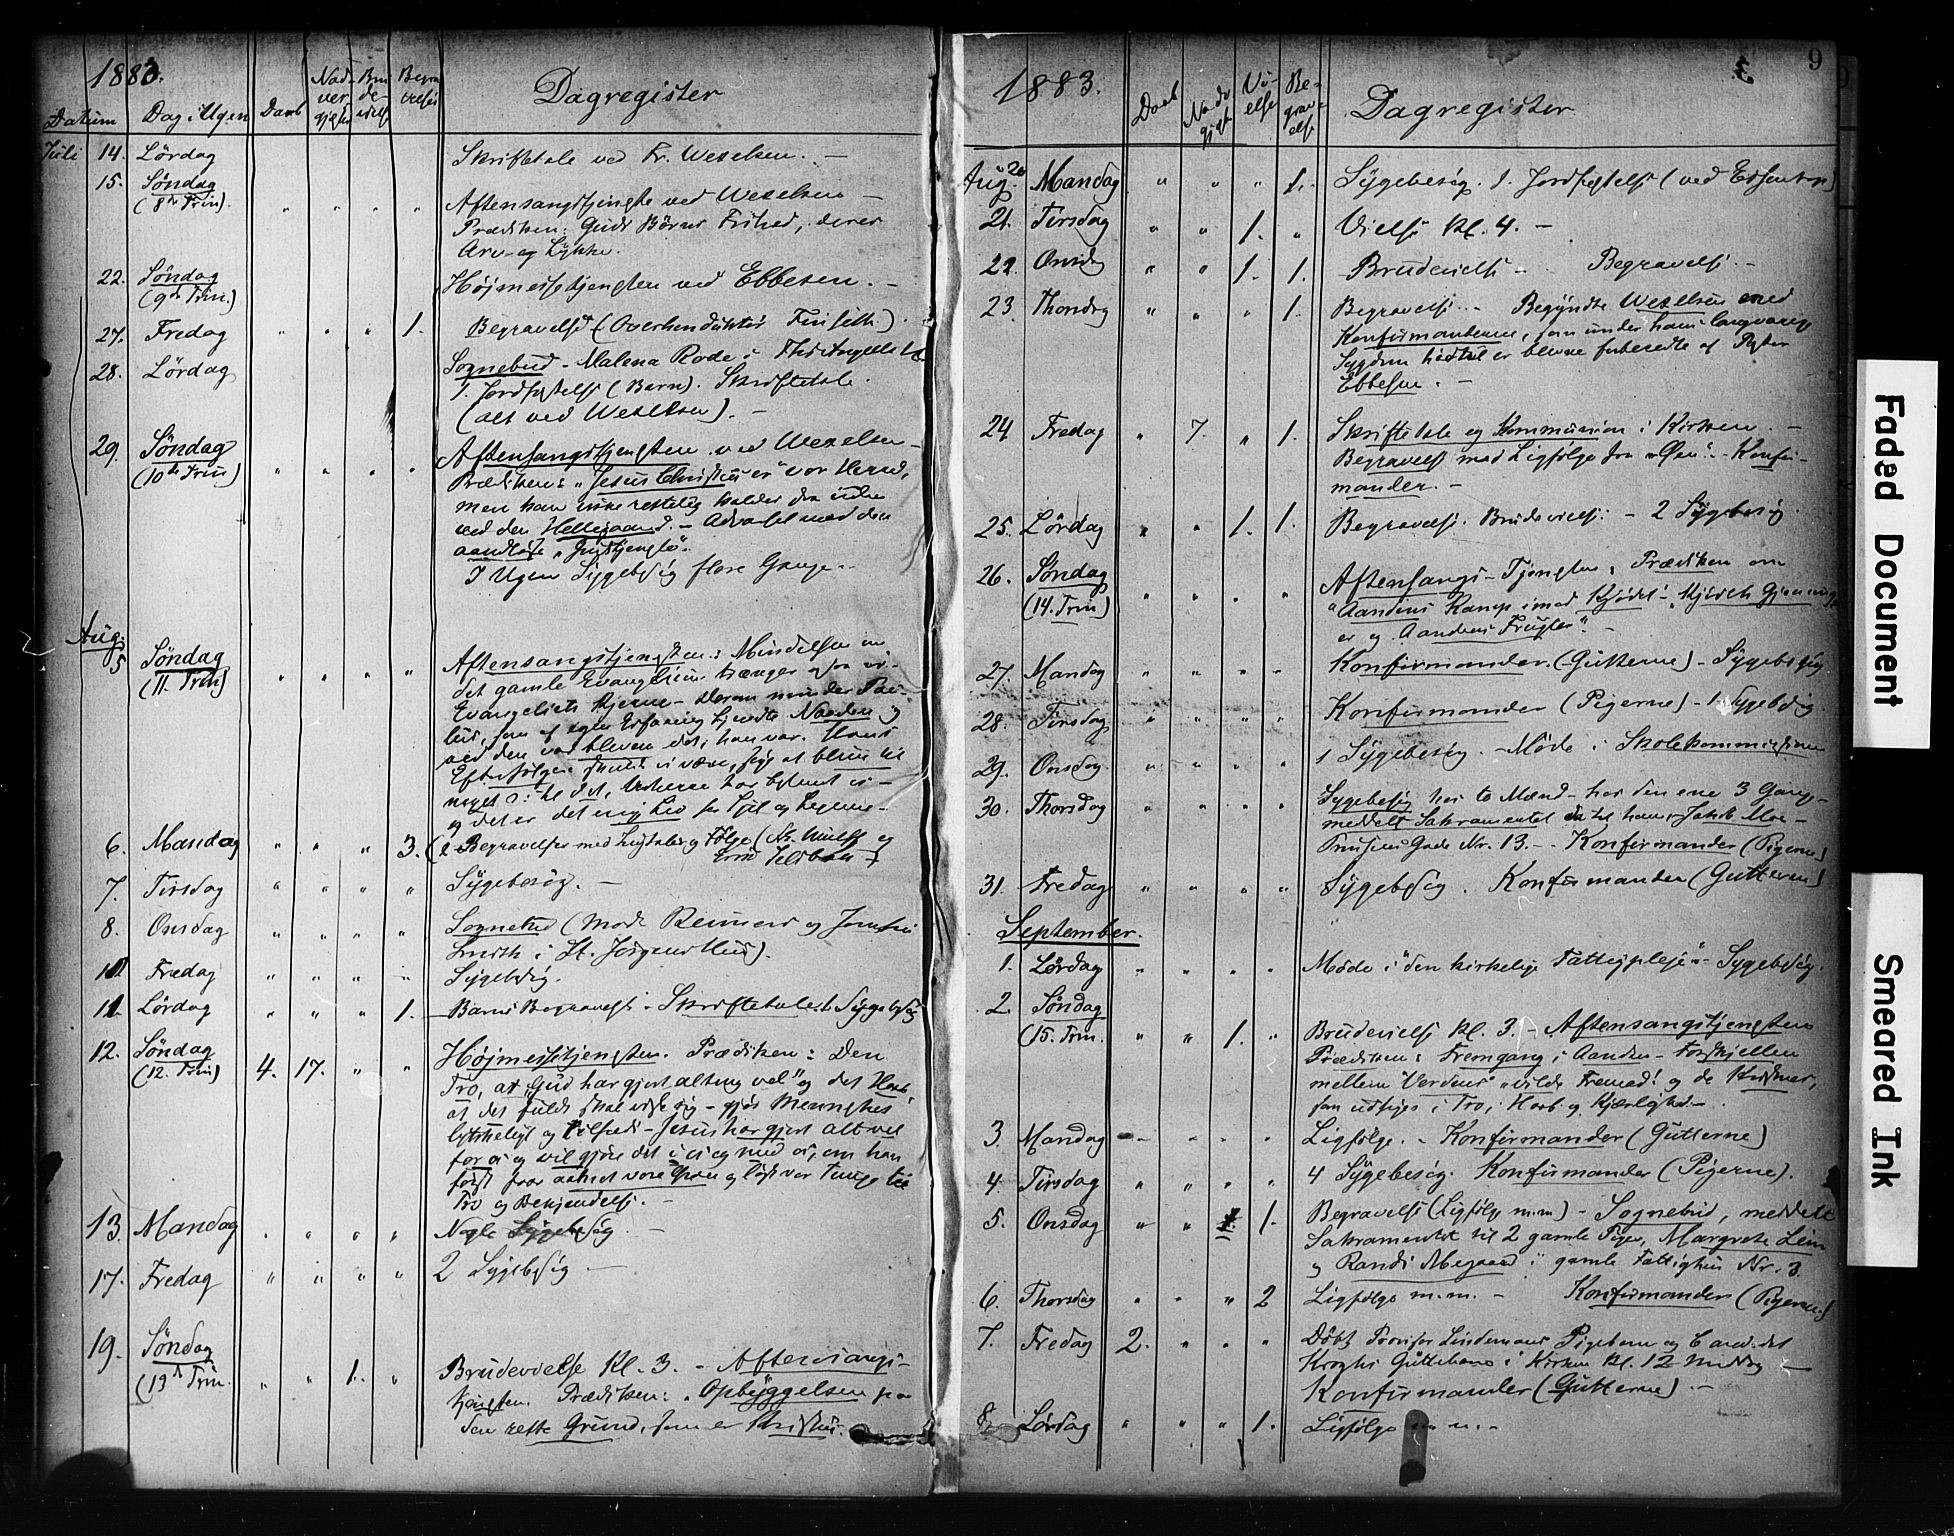 1883.
Datum Dag i Ugen Daab Nadvergjest Brudevielse Begravelse Dagregister
Juli 14. Lørdag Skriftetale ved Fr. Wexelsen. –
15. Søndag
(8de Trin). " " " " Aftensangstjeneste ved Wexelsen –
Prædiken: Guds Børns Frihed, deres
Arv og Lykke.
22. Søndag
(9de Trin.) Højmessetjenesten ved Ebbesen. –
27. Fredag " " " 1. Begravelse (Overkonduktør Finseth).
28. Lørdag Sognebud – Malena Rode i
1. Jordfæstelse (Barn). Skriftetale.
(alt ved Wexelsen). –
29. Søndag
(10de Trin) " " " " Aftensangstjenesten ved Wexelsen –
Prædiken: "Jesus Christus er vor Herre,
men kan ikke rettelig kaldes
ved den Helligaand. – Advarsel mod den
aandløse "Gudstjeneste".
I Ugen Sygebesøg flere Gange. –
Aug.
5 Søndag
(11. Trin) " " " " Aftensangstjenesten: Mindelsen om
det gamle Evangelium trænger ogsaa vi –
Evangeliets Kjerne – Derom minder Pau-
lus, som af egen Erfaring kjendte Naaden og
ved den var bleven det, han var. Hans
Efterfølgere skulde vi være, og blive til
noget
og det er det evig Liv for Sjæl og Legeme –
6. Mandag " " " 3. (2 Begravelser med Ligtaler og Følge
7. Tirsdag " " " " Sygebesøg. –
8. Onsdag " " " " Sognebud (Mad. Reimers og Jomfru
Smith i St. Jørgens Hus).
10 Fredag " " " " Sygebesøg.
11. Lørdag " " " 1. Barns Begravelse – Skriftetale. 1. Sygebesøg
12. Søndag
(12. Trin) 4. 17. " " Højmessetjenesten. Prædiken: Den
Tro, at "Gud har gjort alting vel" og det Haab,
at det fuldt skal vise sig – gjør Mennesket
lykkeligt og tilfreds – Jesus har gjort alt vel
for os og vil gjøre det i os og med os, om han
først faar aabnet vore Øren og løst vor Tunge til
Tro og Bekjendelse. –
13. Mandag " " " " Nogle Sygebesøg –
17. Fredag " " " " 2 Sygebesøg –
19. Søndag
(13de Trin. " " 1. " Brudevielse Kl. 3. – Aftensangs-
tjenesten. Prædiken: "Opbyggelsen paa
den rette Grund, som er Kristus.
9
1883.
Daab Nadvgjest Vi-else Be-grav-else Dagregister
Aug. 20 Mandag " " " 1. Sygebesøg. 1. Jordfæstelse (ved
21. Tirsdag " " 1. " Vielse Kl. 4. –
22. Onsdag " " 1. 1. Brudevielse – Begravelse –
23. Thorsdag " " " 1. Begravelse – Begyndte Wexelsen med
Konfirmanderne, som under hans langvarige
Sygdom hidtil er blevne forberedte af
Ebbesen. –
24 Fredag " 7. " 1. Skriftetale og Kommunion i Kirken. –
Begravelse med Ligfølge fra "Øen". – Konfir-
mander. –
25. Lørdag " " 1. 1. Begravelse. Brudevielse: – 2 Sygebesøg.
26. Søndag
(14. Trin) " " " " Aftensangs-Tjenesten: Prædiken om
"Aandens Kamp imod Kjødet – "Kjødets Gjerninger
og "Aandens Frugter". –
27. Mandag " " " " Konfirmander. (Gutterne) – Sygebesøg
28. Tirsdag " " " " Konfirmander (Pigerne) – 1. Sygebesøg
29. Onsdag. " " " " 1 Sygebesøg. – Møde i Skolekommissionen
30. Thorsdag " " " " Sygebesøg hos to Mænd – hos den ene 3 Gang –
meddelt Sakramentet til ham, Jakob Moe –
Gade Nr. 13. – Konfirmander (Pigerne)
31. Fredag " " " " Sygebesøg. Konfirmander (Gutterne)
September.
1. Lørdag " " " " Møde i "den kirkelige Fattigpleje". – Sygebesøg.
2. Søndag
(15. Trin. " " 1. " Brudevielse Kl. 3. – Aftensangstjenesten
Prædiken: Fremgang i Aanden – Forskjellen
mellem "Verdens" vilde Fremad! og de Kristnes,
som udsiges i Tro, Haab og Kjærlighed –
3. Mandag " " " " Ligfølge. – Konfirmander (Gutterne)
4. Tirsdag " " " " 4 Sygebesøg. Konfirmander (Pigerne).
5. Onsdag " " 1. Begravelse (Ligfølge m.m) – Sognebud, meddelt
Sakramentet til 2 gamle Piger, Margrete Lein
og Randi i gamle Fattighus Nr. 3.
6. Thorsdag " " " 2 Ligfølge m.m. – Konfirmander (Pigerne)
7. Fredag 2. " " " Døbt Provisor Lindemans Pigebarn og Cand.
Kroghs Guttebarn i Kirken Kl. 12 Middag –
Konfirmander (Gutterne) –
8. Lørdag " " " 1. Ligfølge m. m. –
Faded Document
Smeared Ink